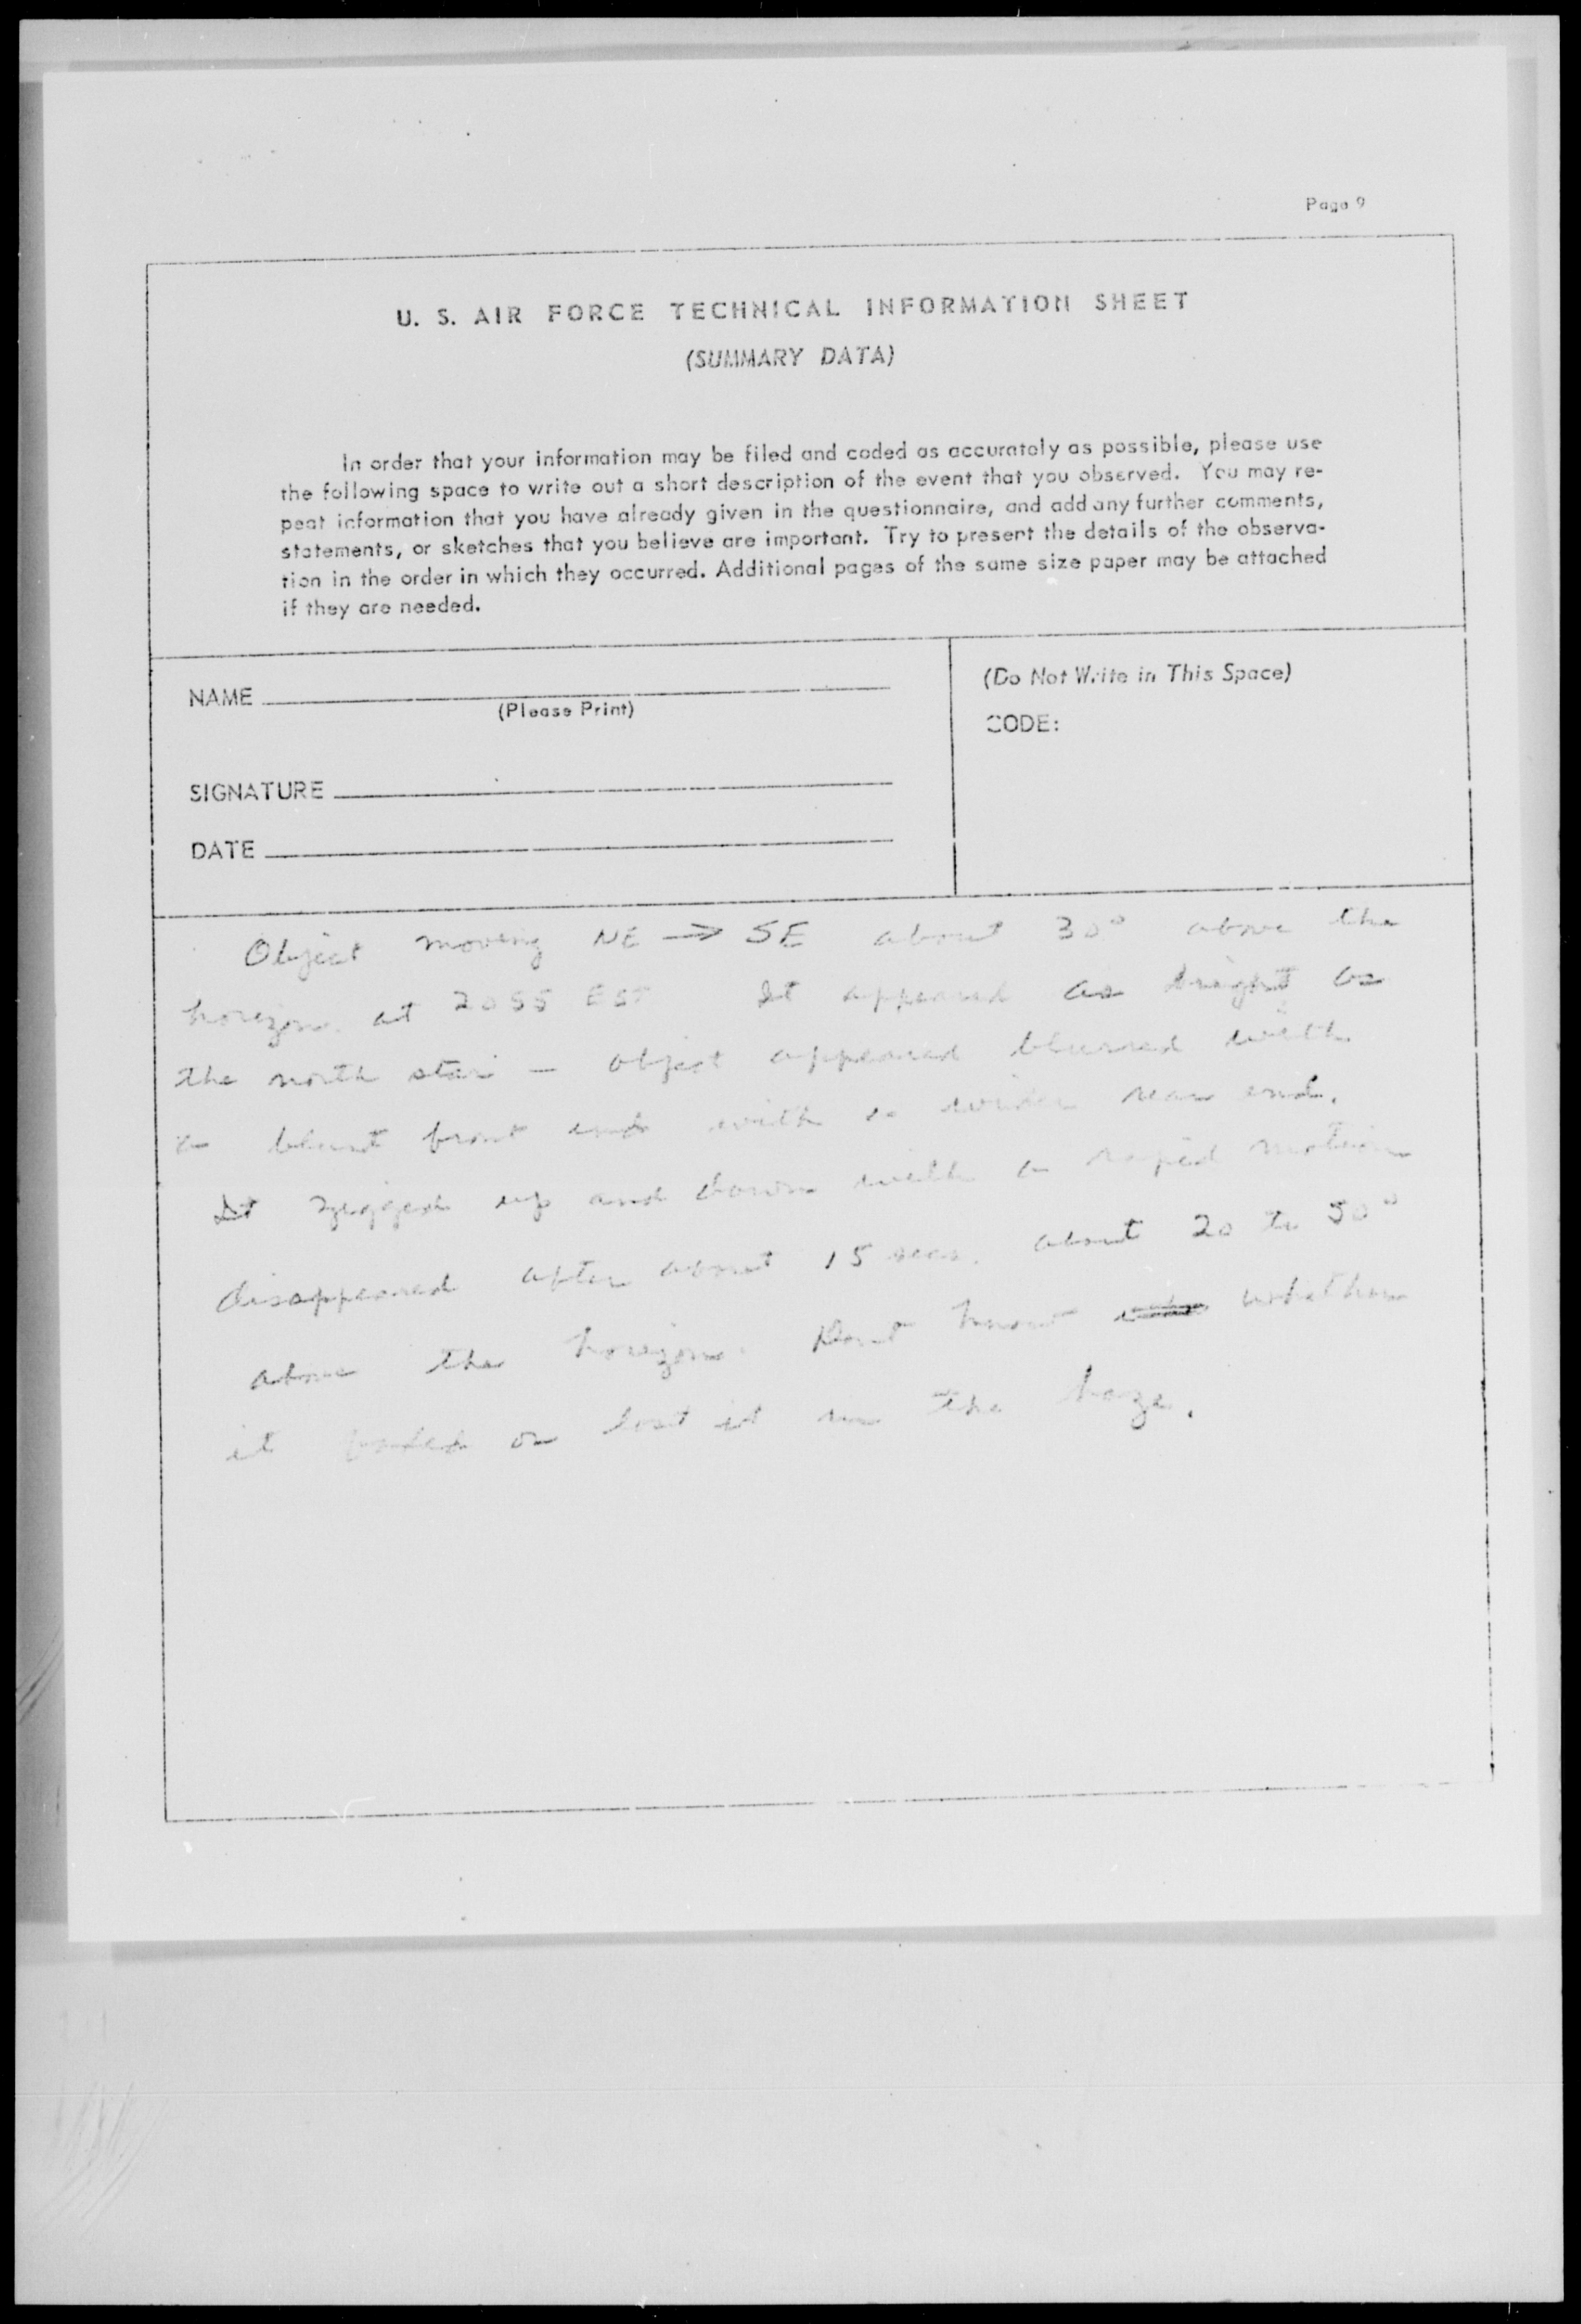 Page 9
U. S. AIR FORCE TECHNICAL INFORMATION SHEET
(SUMMARY DATA)
In order that your information may be filed and coded as accurately as possible, please use
the following space to write out a short description of the event that you observed. You may re-
peat information that you have already given in the questionnaire, and add any further comments,
statements, or sketches that you believe are important. Try to present the details of the observa-
tion in the order in which they occurred. Additional pages of the same size paper may be attached
if they are needed.
NAME
(Please Print)
SIGNATURE
DATE
(Do Not Write in This Space)
CODE:
Object moving NE → SE about 30° above the
horizon at 2055 EST It appeared as bright as
the north star — object appeared blurred with
a blunt front end with a wider rear end.
It zigged up and down with a rapid motion
disappeared after about 15 secs. about 20 to 50°
above the horizon. Dont know whether
it faded or lost it in the haze.